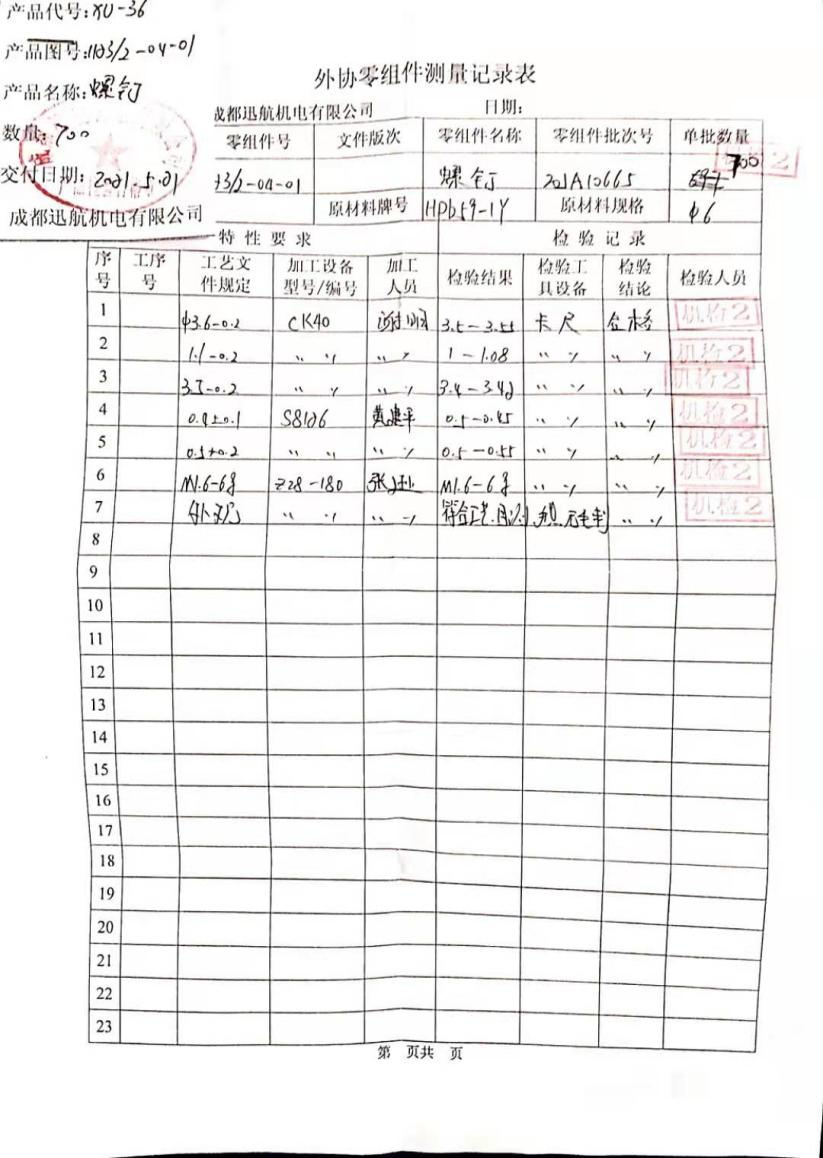 产品代号:XU-36
产品图号:1103/2-04-01
产品名称:螺钉
数量:700
交付日期:2021.5.01
成都迅航机电有限公司
外协零组件测量记录表
成都迅航机电有限公司 日期:
零组件号 文件版次 零组件名称 零组件批次号 单批数量
3/2-04-01 螺钉 700
原材料牌号 HPb59-1Y 原材料规格 φ6
特性要求 检验记录
序号 工序号 工艺文件规定 加工设备型号/编号 加工人员 检验结果 检验工具设备 检验结论 检验人员
1 φ3.6-0.2 CK40 3.5-3.55 卡尺 合格 机检2
2 1.1-0.2 〃 〃 〃 〃 1-1.08 〃 〃 〃 〃 机检2
3 3.5-0.2 〃 〃 〃 〃 〃 〃 〃 〃 机检2
4 S8126 黄建平 0.5-0.45 〃 〃 〃 〃 机检2
5 0.5+0.2 〃 〃 〃 〃 0.5-0.55 〃 〃 〃 〃 机检2
6 M1.6-6g Z28-180 M1.6-6g 〃 〃 〃 〃 机检2
7 外观 〃 〃 〃 〃 符合工艺.目测 无毛刺 〃 〃 机检2
8
9
10
11
12
13
14
15
16
17
18
19
20
21
22
23
第 页共 页